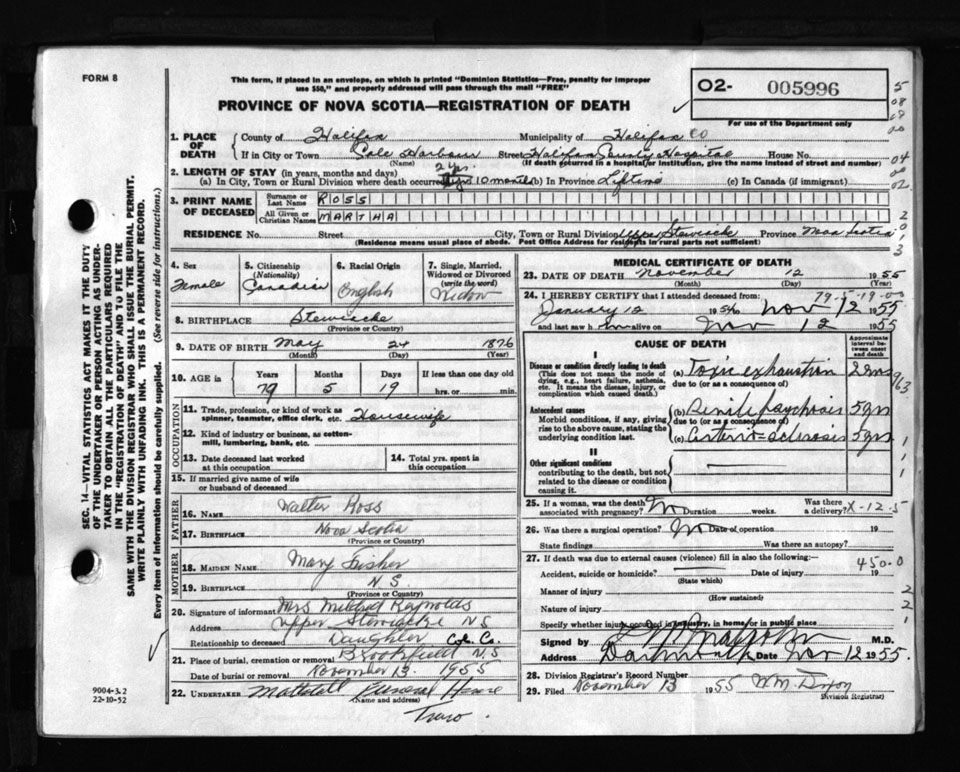 FORM 8
This form, if placed in an envelope, on which is printed "Dominion Statistics—Free, penalty for improper
use $50," and properly addressed will pass through the mail "FREE"
PROVINCE OF NOVA SCOTIA—REGISTRATION OF DEATH
O2- 005996
For use of the Department only
1. PLACE OF DEATH
County of Halifax Municipality of Halifax Co
If in City or Town Cole Harbour Street Halifax County Hospital House No.
(Name) (If death occurred in a hospital or institution, give the name instead of street and number)
2. LENGTH OF STAY (in years, months and days) 2 yrs.
(a) In City, Town or Rural Division where death occurred 10 months (b) In Province Lifetime (c) In Canada (if immigrant)
3. PRINT NAME OF DECEASED
Surname or Last Name ROSS
All Given or Christian Names MARTHA
RESIDENCE No. Street City, Town or Rural Division Upper Stewiacke Province Nova Scotia
(Residence means usual place of abode. Post Office Address for residents in rural parts not sufficient)
4. Sex Female
5. Citizenship (Nationality) Canadian
6. Racial Origin English
7. Single, Married, Widowed or Divorced (write the word) Widow
8. BIRTHPLACE Stewiacke
(Province or Country)
9. DATE OF BIRTH May 24 1876
(Month) (Day) (Year)
10. AGE in Years Months Days If less than one day
79 5 19 hrs. or min.
OCCUPATION
11. Trade, profession, or kind of work as spinner, teamster, office clerk, etc. Housewife
12. Kind of industry or business, as cotton-mill, lumbering, bank, etc.
13. Date deceased last worked at this occupation
14. Total yrs. spent in this occupation
15. If married give name of wife or husband of deceased
FATHER
16. Name Walter Ross
17. BIRTHPLACE Nova Scotia
(Province or Country)
MOTHER
18. MAIDEN NAME Mary Fisher
19. BIRTHPLACE N.S.
(Province or Country)
20. Signature of informant Mrs Mildred Reynolds
Address Upper Stewiacke N S
Relationship to deceased Daughter Col. Co.
21. Place of burial, cremation or removal Brookfield N.S
Date of burial or removal November 13 1955
22. UNDERTAKER Mattatall Funeral House
(Name and address)
Truro.
MEDICAL CERTIFICATE OF DEATH
23. DATE OF DEATH November 12 1955
(Month) (Day) (Year)
79-5-19-0
24. I HEREBY CERTIFY that I attended deceased from:
January 12 1954 to Nov 12 1955
and last saw h alive on Nov 12 1955
CAUSE OF DEATH
Approximate interval between onset and death
I
Disease or condition directly leading to death
(This does not mean the mode of dying, e.g., heart failure, asthenia, etc. It means the disease, injury, or complication which caused death.)
(a) Toxic exhaustion
due to (or as a consequence of)
Antecedent causes
Morbid conditions, if any, giving rise to the above cause, stating the underlying condition last.
(b) Senile psychosis 5 yrs
due to (or as a consequence of)
(c) Arterio-sclerosis 5 yrs
II
Other significant conditions
contributing to the death, but not related to the disease or condition causing it.
25. If a woman, was the death associated with pregnancy? No Duration weeks. Was there a delivery? X-12-5
26. Was there a surgical operation? No Date of operation 19
State findings Was there an autopsy?
27. If death was due to external causes (violence) fill in also the following:— 450.0
Accident, suicide or homicide? Date of injury 19
(State which)
Manner of injury
(How sustained)
Nature of injury
Specify whether injury occurred in industry, in home, or in public place
Signed by M.D.
Address Dartmouth Date Nov 12 1955.
28. Division Registrar's Record Number
29. Filed November 13 1955 W.M. Dixon
(Division Registrar)
SEC. 14—VITAL STATISTICS ACT MAKES IT THE DUTY
OF THE UNDERTAKER OR PERSON ACTING AS UNDER-
TAKER TO OBTAIN ALL THE PARTICULARS REQUIRED
IN THE "REGISTRATION OF DEATH" AND TO FILE THE
SAME WITH THE DIVISION REGISTRAR WHO SHALL ISSUE THE BURIAL PERMIT.
WRITE PLAINLY WITH UNFADING INK. THIS IS A PERMANENT RECORD.
Every item of information should be carefully supplied. (See reverse side for instructions.)
9004-3.2
22-10-52